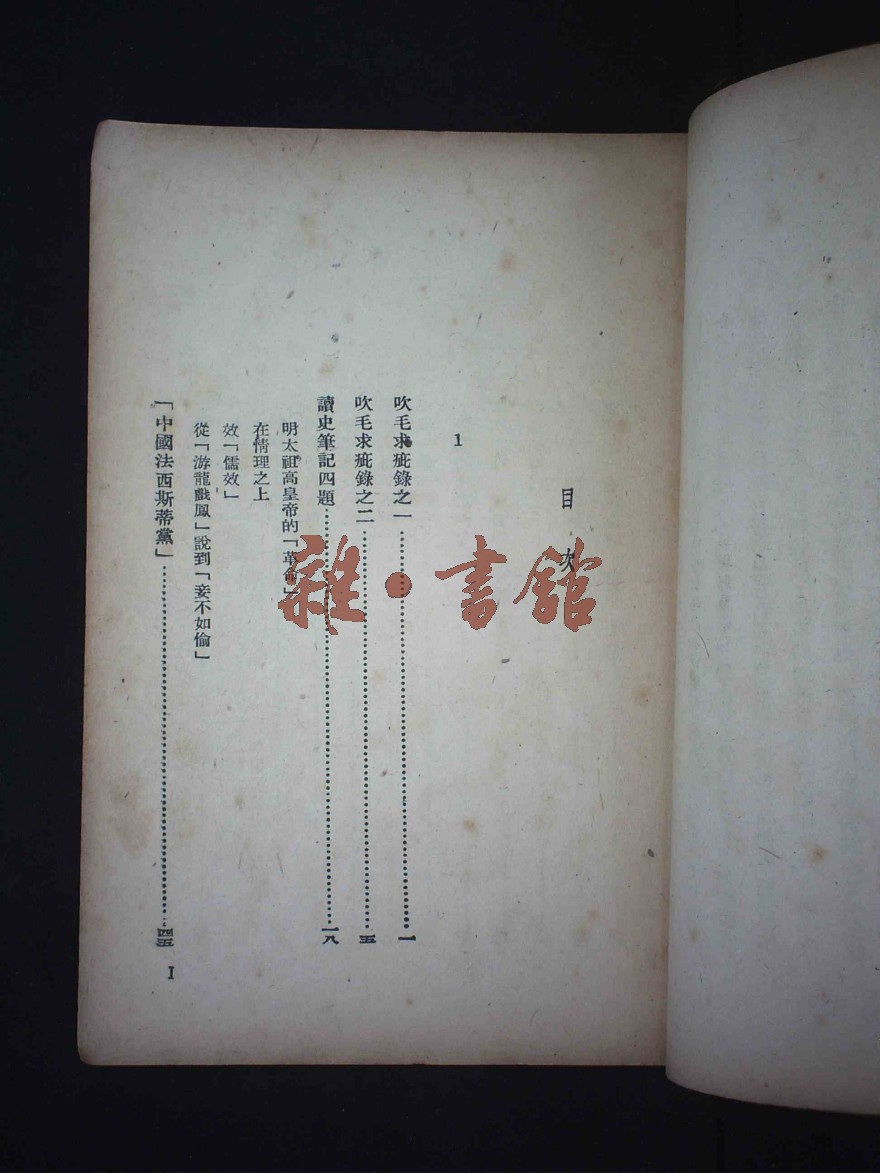 目次
1
吹毛求疵錄之一……一
吹毛求疵錄之二……五
讀史筆記四題……一八
明太祖高皇帝的「革命」
在情理之上
效「儒效」
從「游龍戲鳳」說到「妾不如偷」
「中國法西斯蒂黨」……四五
I
雜·書館